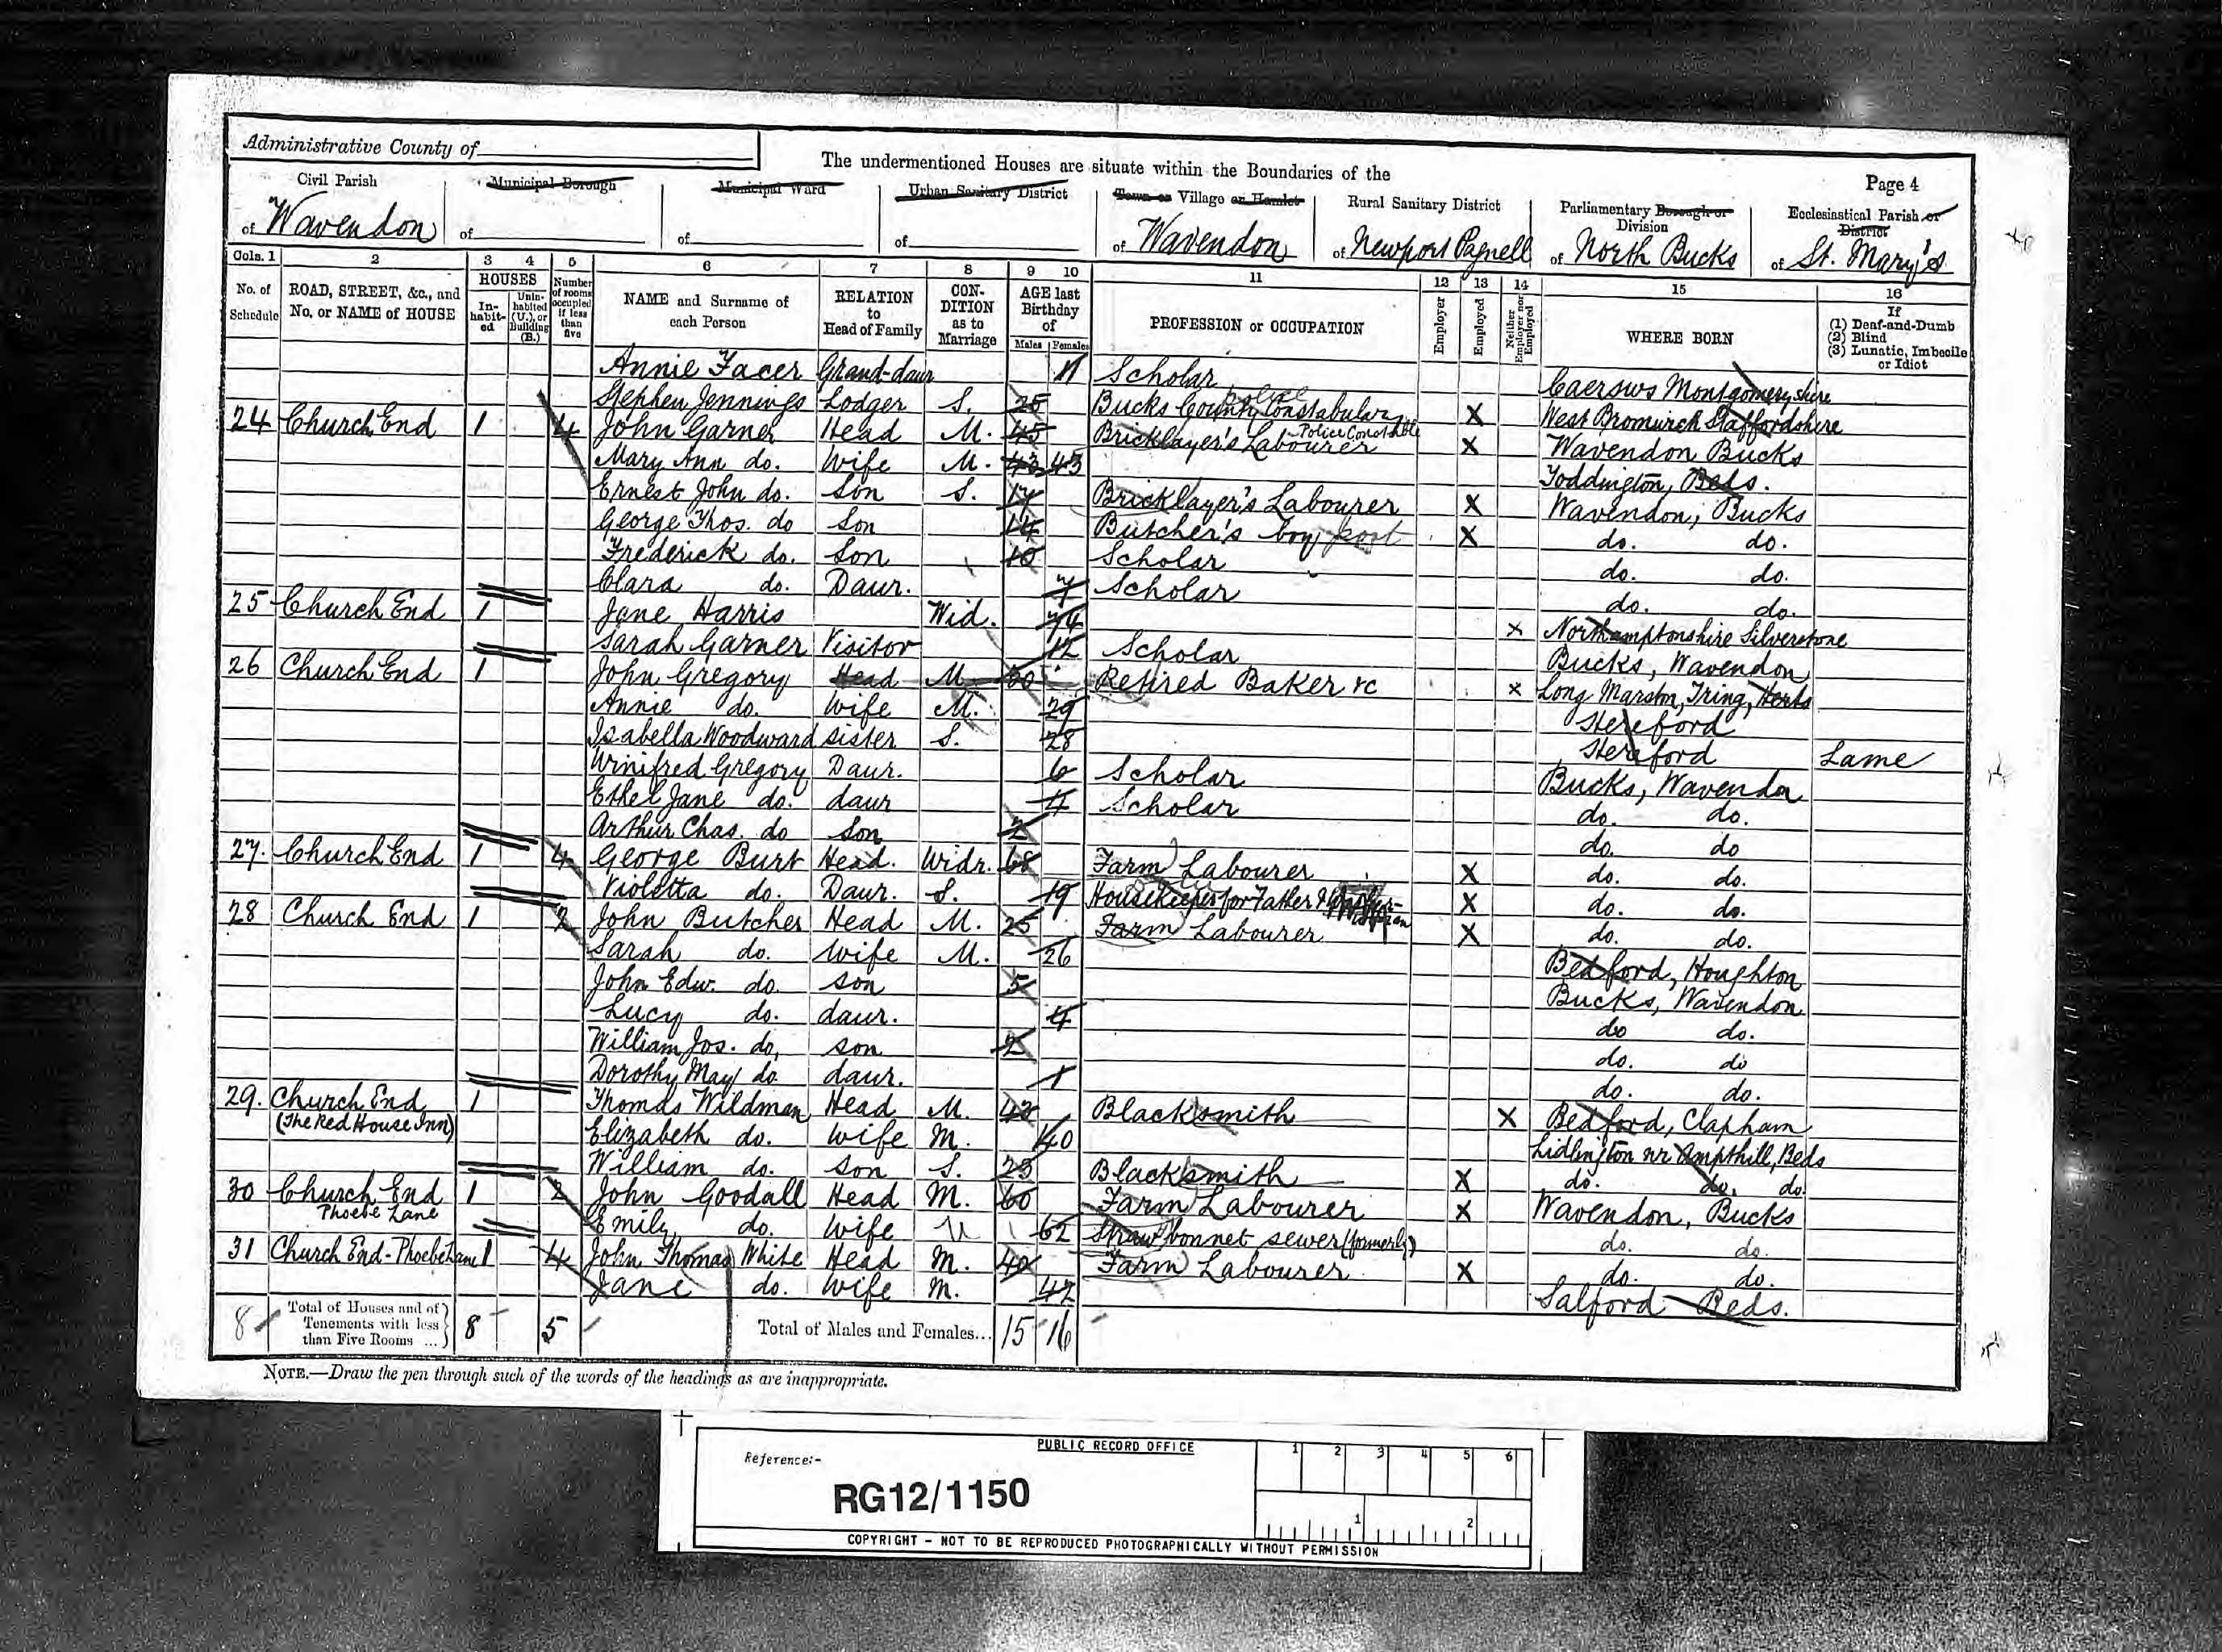 Administrative County of
The undermentioned Houses are situate within the Boundaries of the
Page 4
Civil Parish of Wavendon
Municipal Borough of
Municipal Ward of
Urban Sanitary District of
Town or Village or Hamlet of Wavendon
Rural Sanitary District of Newport Pagnell
Parliamentary Borough or Division of North Bucks
Ecclesiastical Parish or District of St. Mary's
Cols. 1 2 3 4 5 6 7 8 9 10 11 12 13 14 15 16
No. of Schedule
ROAD, STREET, &c., and No. or NAME of HOUSE
HOUSES
In-habit-ed
Unin-habited (U.), or Building (B.)
Number of rooms occupied if less than five
NAME and Surname of each Person
RELATION to Head of Family
CON-DITION as to Marriage
AGE last Birthday of
Males Females
PROFESSION or OCCUPATION
Employer
Employed
Neither Employer nor Employed
WHERE BORN
If (1) Deaf-and-Dumb (2) Blind (3) Lunatic, Imbecile or Idiot
Annie Facer Grand-daur 11 Scholar Caersws Montgomeryshire
Stephen Jennings Lodger S. 25 Bucks County Police Constabulary Police Constable X West Bromwich Staffordshire
24 Church End 1 4 John Garner Head M. 45 Bricklayer's Labourer X Wavendon Bucks
Mary Ann do. Wife M. 43 43 Toddington, Beds.
Ernest John do. Son S. 17 Bricklayer's Labourer X Wavendon, Bucks
George Thos. do Son 14 Butcher's boy X do. do.
Frederick do. Son 10 Scholar do. do.
Clara do. Daur. 7 Scholar do. do.
25 Church End 1 Jane Harris Wid. 74 X Northamptonshire Silverstone
Sarah Garner Visitor 12 Scholar Bucks, Wavendon
26 Church End 1 John Gregory Head M 60 Retired Baker &c X Long Marston, Tring, Herts
Annie do. Wife M. 29 Hereford
Isabella Woodward sister S. 28 Hereford Lame
Winifred Gregory Daur. 6 Scholar Bucks, Wavendon
Ethel Jane do. daur 4 Scholar do. do.
Arthur Chas. do Son 2 do. do
27. Church End 1 4 George Burt Head. Widr. 68 Farm Labourer X do. do.
Violetta do. Daur. S. 19 Housekeeper for Father X do. do.
28 Church End 1 2 John Butcher Head M. 25 Farm Labourer X do. do.
Sarah do. Wife M. 26 Bedford, Houghton
John Edw. do. son 5 Bucks, Wavendon
Lucy do. daur. 4 do do.
William Jos. do, son 2 do. do
Dorothy May do daur. 1 do. do.
29. Church End (The Red House Inn) 1 Thomas Wildman Head M. 43 Blacksmith X Bedford, Clapham
Elizabeth do. Wife M. 40 Lidlington nr Ampthill, Beds
William do. son S. 23 Blacksmith X do. do. do.
30 Church End Phoebe Lane 1 2 John Goodall Head M. 60 Farm Labourer X Wavendon, Bucks
Emily do. Wife 62 Straw bonnet sewer (formerly) do. do.
31 Church End - Phoebe Lane 1 4 John Thomas White Head M. 40 Farm Labourer X do. do.
Jane do. Wife M. 42 Salford Beds.
8 Total of Houses and of Tenements with less than Five Rooms ... 8 5 Total of Males and Females... 15 16
NOTE.—Draw the pen through such of the words of the headings as are inappropriate.
PUBLIC RECORD OFFICE
1 2 3 4 5 6
Reference:-
RG12/1150
1 2
COPYRIGHT - NOT TO BE REPRODUCED PHOTOGRAPHICALLY WITHOUT PERMISSION